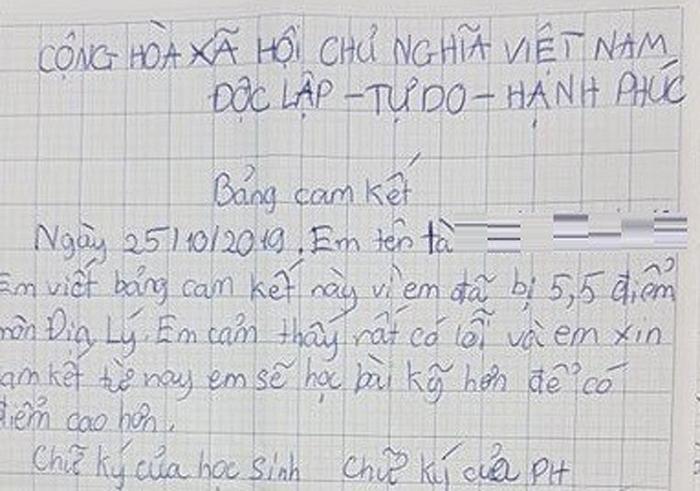 CỘNG HÒA XÃ HỘI CHỦ NGHĨA VIỆT NAM
ĐỘC LẬP - TỰ DO - HẠNH PHÚC
Bảng cam kết
Ngày 25/10/2019. Em tên là
Em viết bảng cam kết này vì em đã bị 5,5 điểm
môn Địa Lý. Em cảm thấy rất có lỗi và em xin
cam kết từ nay em sẽ học bài kỹ hơn để có
điểm cao hơn.
Chữ ký của học sinh Chữ ký của PH